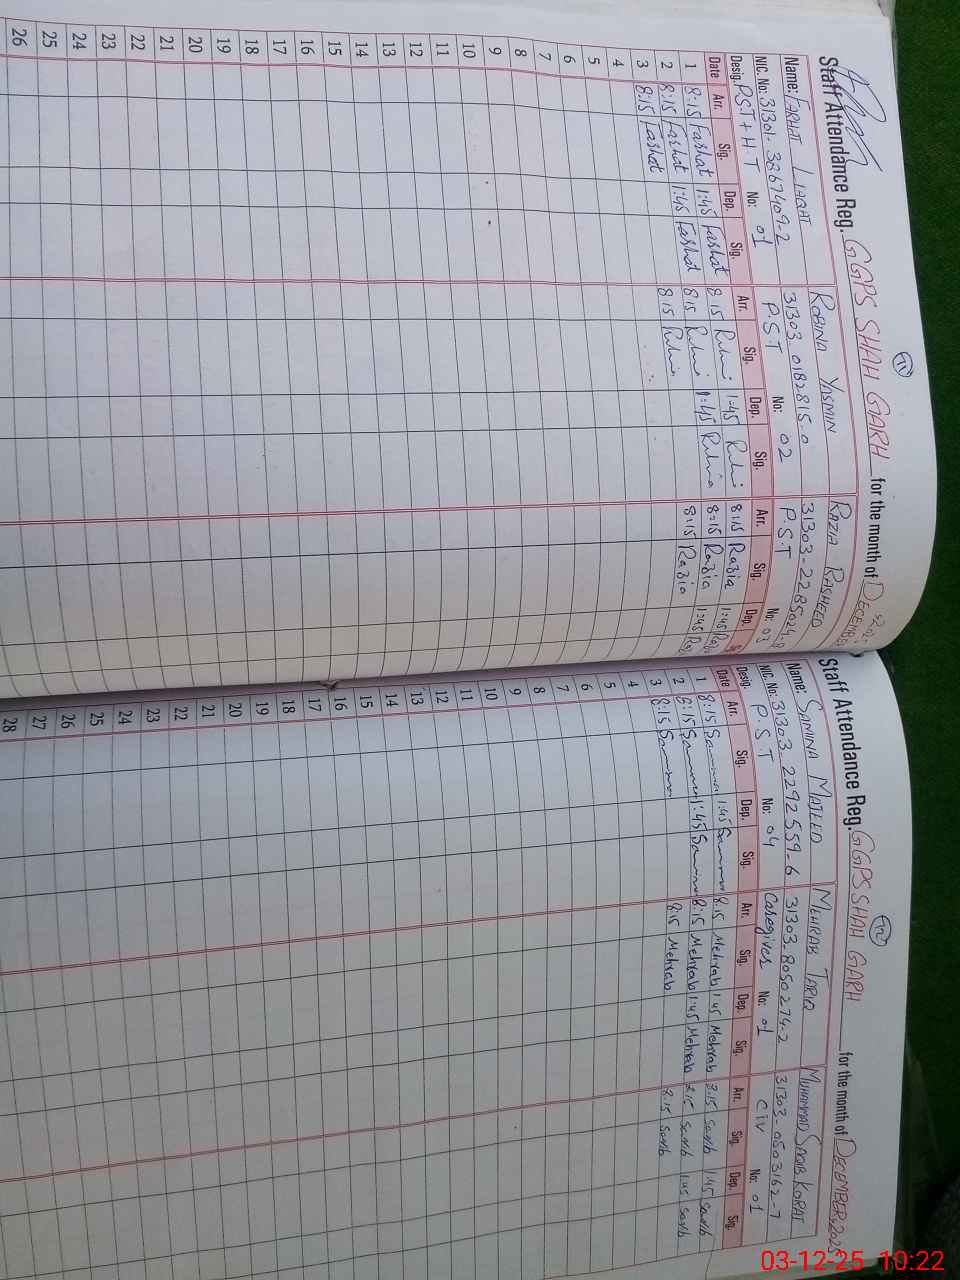 71
Staff Attendance Reg. GGPS SHAH GARH for the month of DECEMBER
Name: FARHAT LIAQAT ROBINA YASMIN RAZIA RASHEED
NIC. No: 31301-3867409-2 31303-0182815-0 31303-2285024-
Desig. P.S.T + H.T No: 01 P.S.T No: 02 P.S.T No: 03
Date Arr. Sig. Dep. Sig. Arr. Sig. Dep. Sig. Arr. Sig. Dep.
1 8:15 Farhat 1:45 Farhat 8:15 1:45 8:15 Razia 1:45
2 8:15 Farhat 1:45 Farhat 8:15 1:45 8:15 Razia 1:45
3 8:15 Farhat 8:15 8:15 Razia
4
5
6
7
8
9
10
11
12
13
14
15
16
17
18
19
20
21
22
23
24
25
26
72
Staff Attendance Reg. GGPS SHAH GARH for the month of DECEMBER, 2025
Name: SAMINA MAJEED MEHRAB TARIQ MUHAMMAD KORAI
NIC. No: 31303-2292559-6 31303-8050274-2 31303-0503162-7
Desig. P.S.T No: 04 Caregiver No: 01 CIV No: 01
Date Arr. Sig. Dep. Sig. Arr. Sig. Dep. Sig. Arr. Sig. Dep. Sig.
1 8:15 Samina 1:45 Samina 8:15 Mehrab 1:45 Mehrab 8:15 1:45
2 8:15 Samina 1:45 Samina 8:15 Mehrab 1:45 Mehrab 8:15 1:45
3 8:15 Samina 8:15 Mehrab 8:15
4
5
6
7
8
9
10
11
12
13
14
15
16
17
18
19
20
21
22
23
24
25
26
27
28
03-12-25 10:22